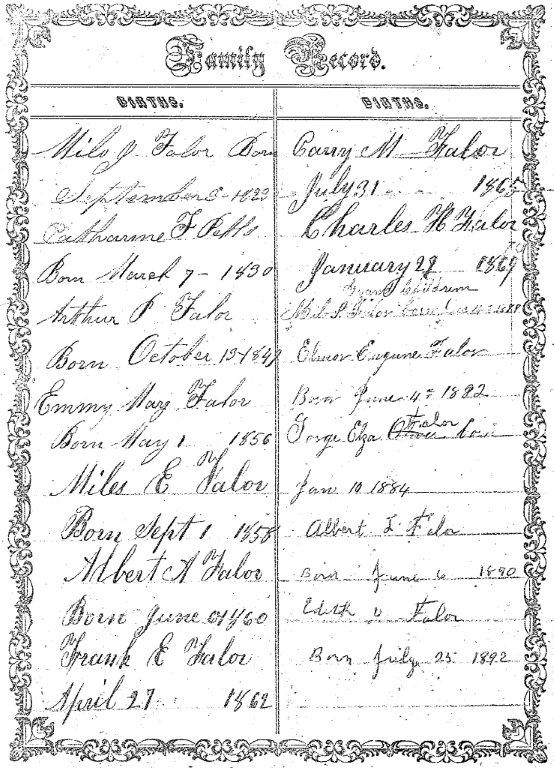 Family Record.
BIRTHS.
Milo J Falor Born
September 8 - 1823
Catharine F Petts
Born March 7 - 1830
Arthur P Falor
Born October 13 1849
Emmy May Falor
Born May 1 1856
Miles E Falor
Born Sept 1 1858
Albert A Falor
Born June 1860
Frank E Falor
April 27 1862
BIRTHS.
Carry M Falor
July 31 1865
Charles H Falor
January 29 1869
Grand Children
Falor
Eugune Falor
Born June 4 1882
Falor
Elza born
Jan 10 1884
Albert L Falor
Born June 6 1890
Edith Falor
Born July 25 1892